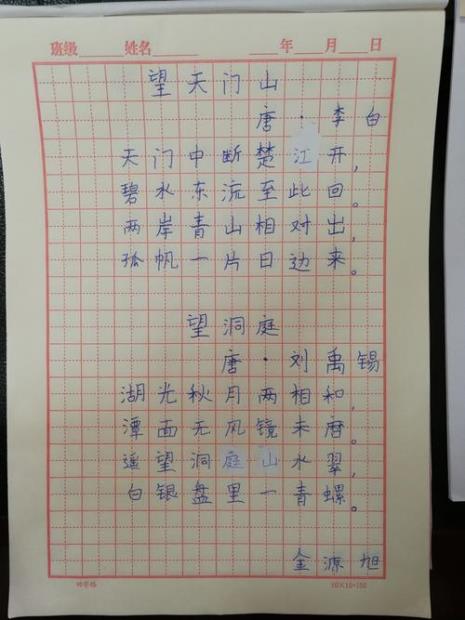 班级______姓名______ ____年____月____日
望天门山
唐·李白
天门中断楚江开,
碧水东流至此回。
两岸青山相对出,
孤帆一片日边来。
望洞庭
唐·刘禹锡
湖光秋月两相和,
潭面无风镜未磨。
遥望洞庭山水翠,
白银盘里一青螺。
金源旭